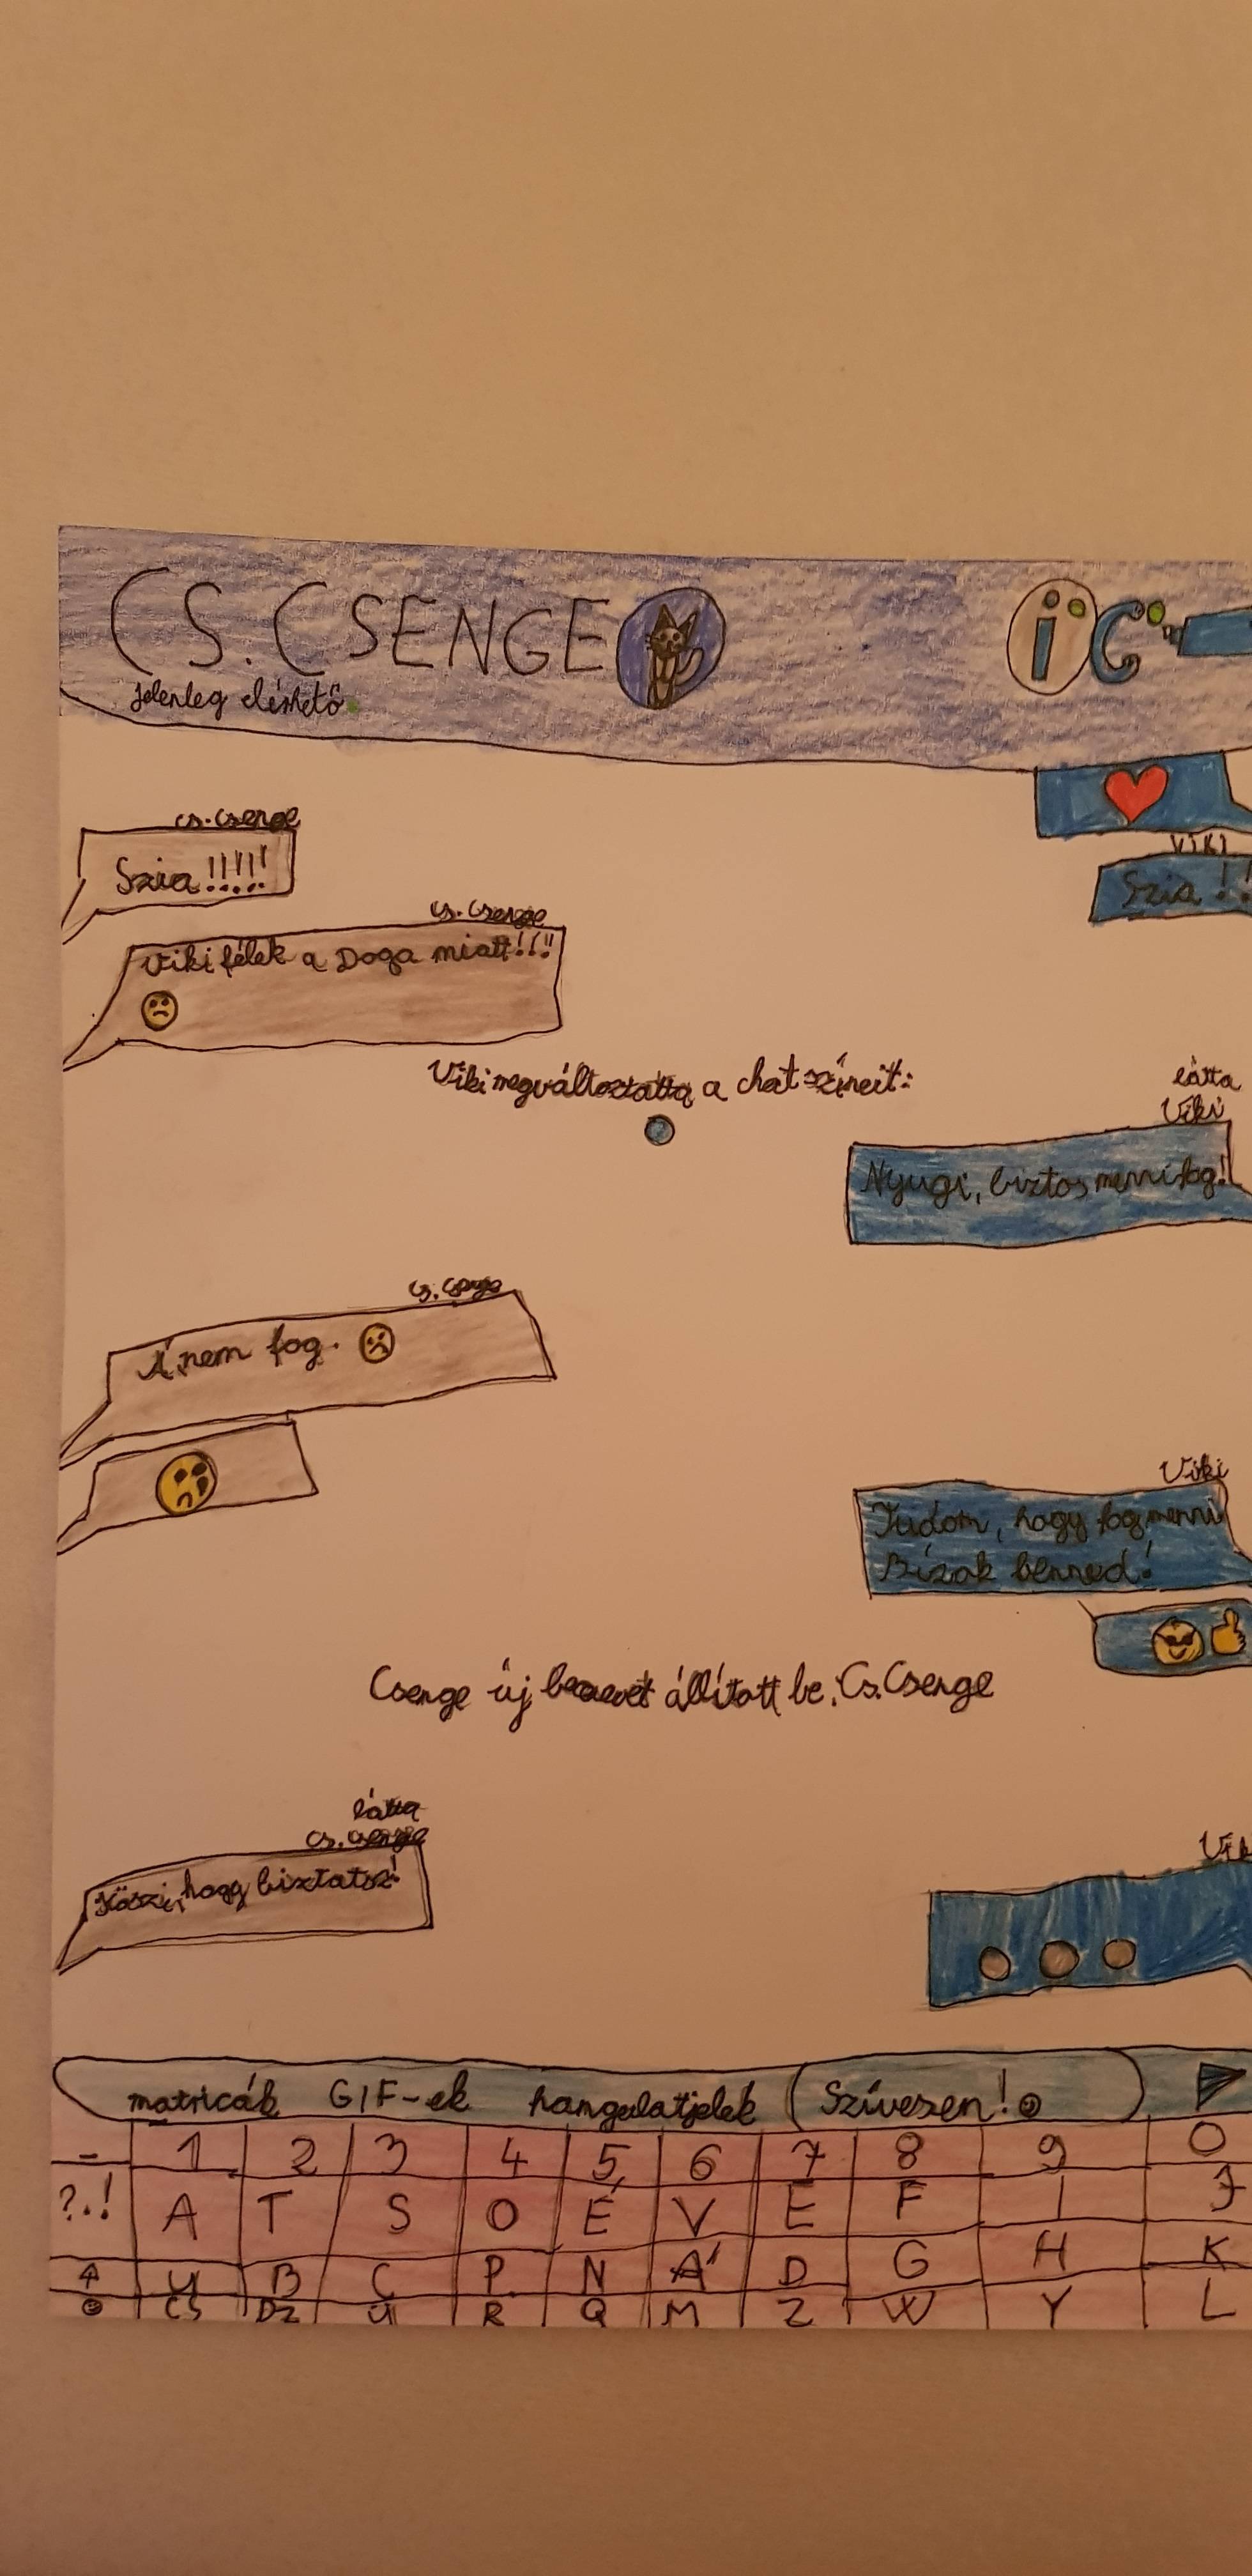 CS. CSENGE
i
Jelenleg elérhető
cs. Csenge
Szia!!!!!
Viki
Szia!!
Cs. Csenge
Viki félek a Doga miatt!!!!
Viki megváltoztatta a chat színeit:
látta
Viki
Nyugi, biztos menni fog!
Cs. Csenge
Á, nem fog.
Viki
Tudom, hogy fog menni
Bízok benned!
Csenge új becenevet állított be: Cs. Csenge
látta
Cs. Csenge
Köszi, hogy biztatsz!
Vik
matricák GIF-ek hangulatjelek Szívesen!
- 1 2 3 4 5 6 7 8 9 0
?.! A T S O É V E F I J
U B C P N Á D G H K
CS DZ Ü R Q M Z W Y L